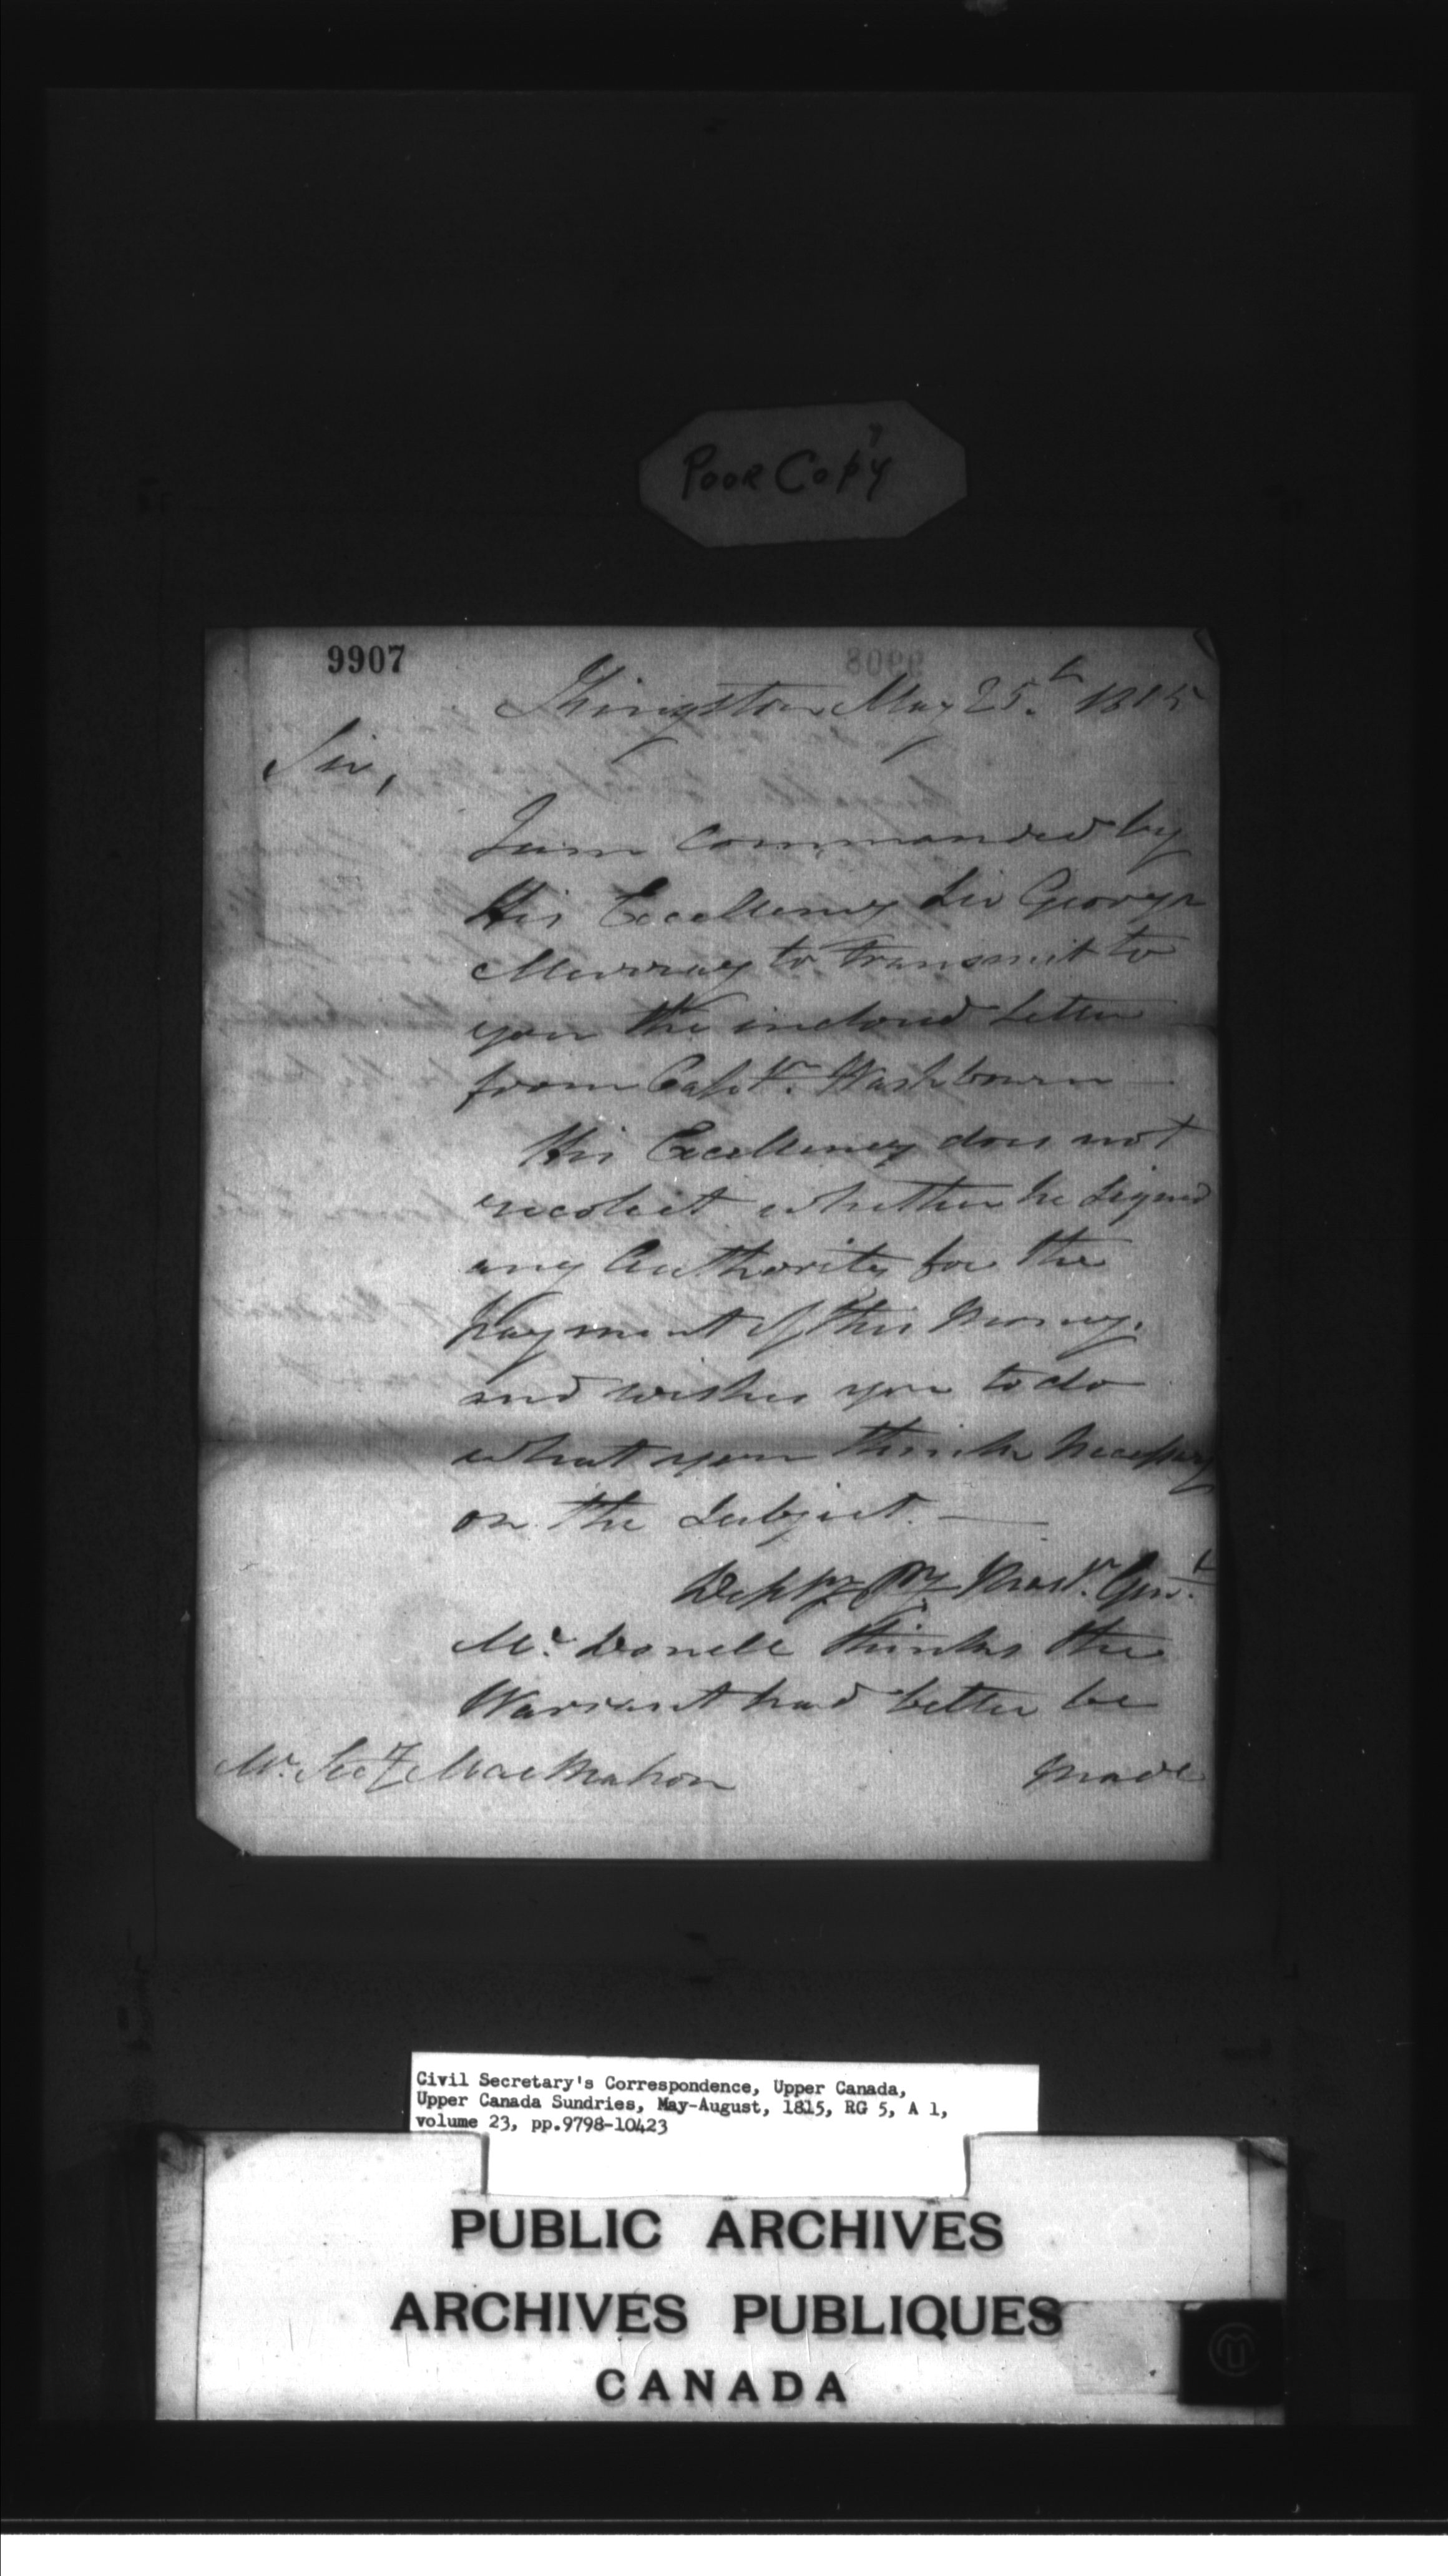 Poor Copy
9907
Kingston May 25th. 1815
Sir,
I am Commanded by
His Excellency Sir George
Murray to transmit to
you the inclosed Letter
from Captn. Washbourn
His Excellency does not
recolect whether he Signed
any Authority for the
Payment of this Money.
and wishes you to do
what you think Necessary
on the Subject. —
Depty Py Mastr. Genl.
Mc. Donell thinks the
Warrant had better be
Mr. Secy MacMahon made
Civil Secretary's Correspondence, Upper Canada,
Upper Canada Sundries, May-August, 1815, RG 5, A 1,
volume 23, pp.9798-10423
PUBLIC ARCHIVES
ARCHIVES PUBLIQUES
CANADA